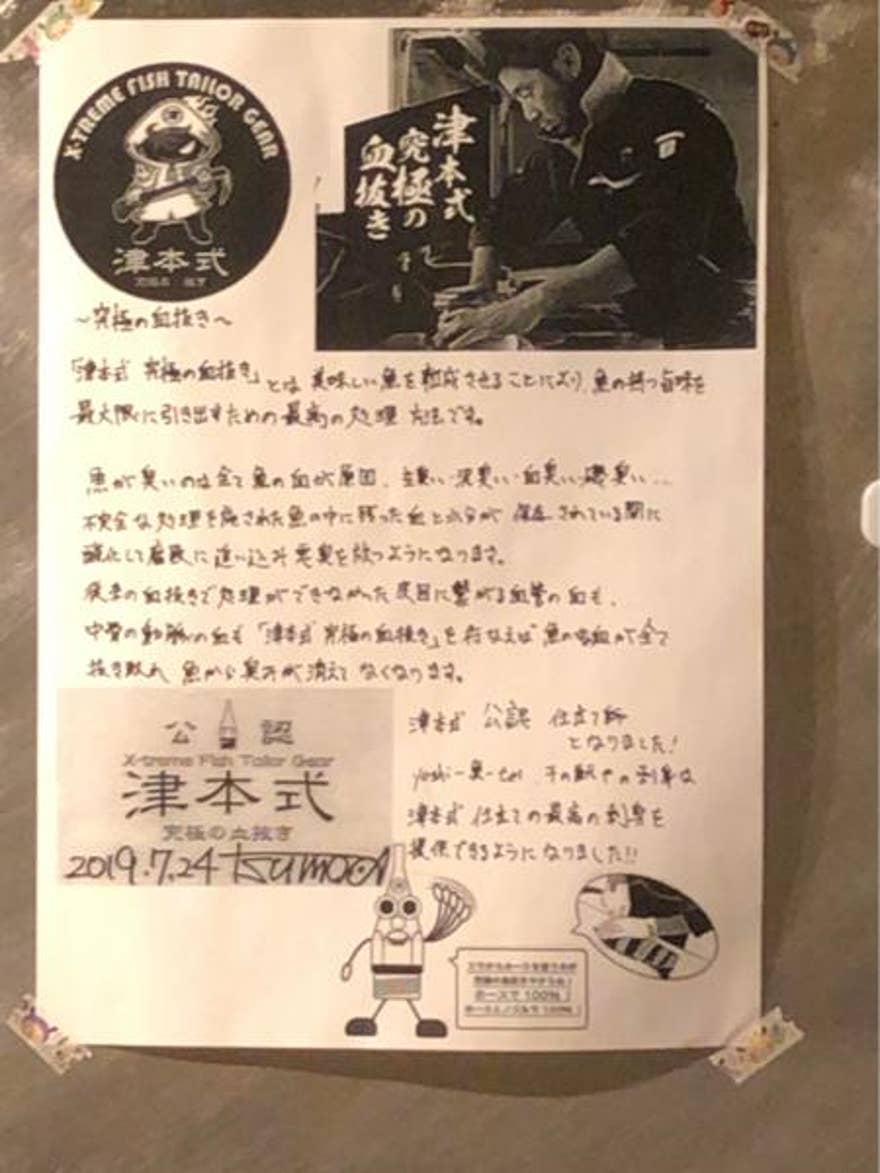 X-TREME FISH TAILOR GEAR
津本式
津本式
究極の
血抜き
〜究極の血抜き〜
「津本式 究極の血抜き」とは 美味しい魚を熟成させることにより、魚の持つ旨味を
最大限に引き出すための最高の処理方法です。
魚が臭いのは全て魚の血が原因、生臭い・泥臭い・血臭い・磯臭い...
不完全な処理を施された魚の中に残った血と水分が 保存されている間に
酸化して腐敗に追い込み悪臭を放つようになります。
従来の血抜きで処理ができなかった尾に繋がる血管の血も、
中骨の動脈の血も「津本式 究極の血抜き」を行なえば 魚の血が全て
抜き取れ 魚から臭みが消えてなくなります。
公認
X-treme Fish Tailor Gear
津本式
究極の血抜き
2019.7.24 tsumoto
津本式 公認 仕立て師
となりました!
yoshi-魚-tei の刺身は
津本式 仕立ての最高の刺身を
提供できるようになりました!!
ホースで100%!